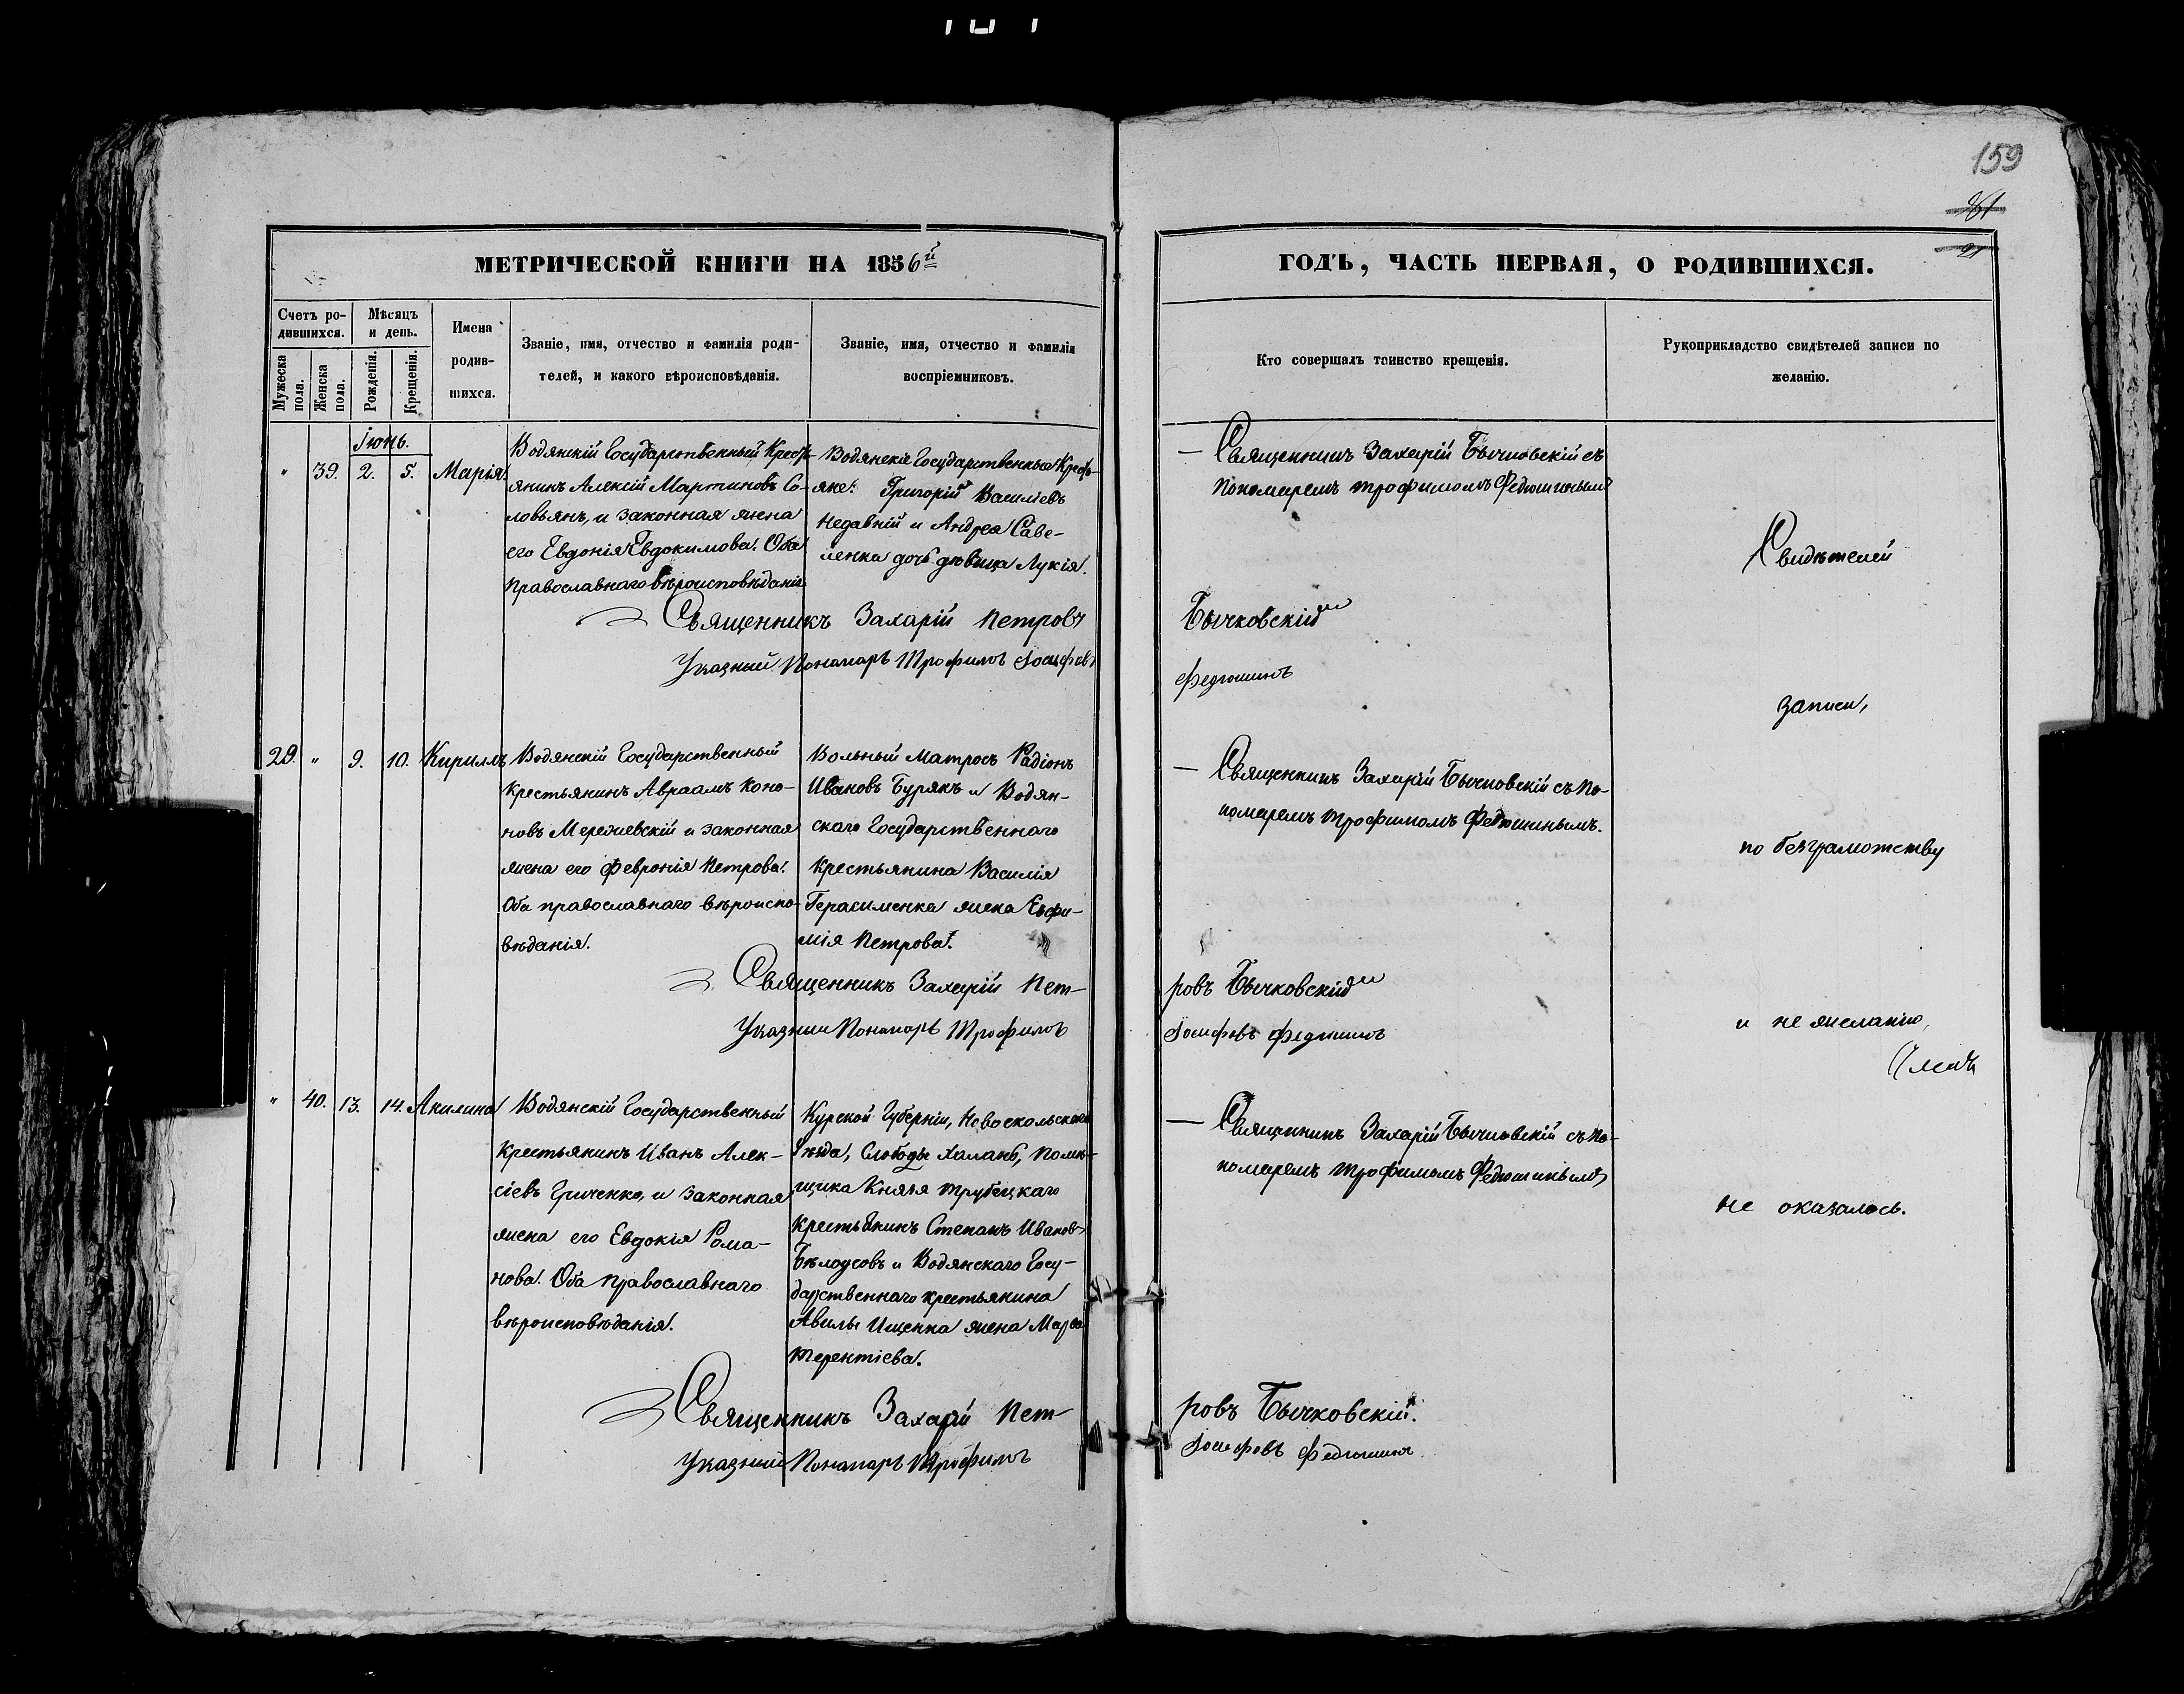 159
МЕТРИЧЕСКОЙ КНИГИ НА 1856й
Счетъ ро-
дившихся.
Мужеска
пола.
Женска
пола.
Мѣсяцъ
и день.
Рожденія.
Крещенія.
Имена
родив-
шихся.
Званіе, имя, отчество и фамилія роди-
телей, и какого вѣроисповѣданія.
Званіе, имя, отчество и фамилія
воспріемниковъ.
ГОДЪ, ЧАСТЬ ПЕРВАЯ, О РОДИВШИХСЯ.
Кто совершалъ таинство крещенія.
Рукоприкладство свидѣтелей записи по
желанію.
Іюнь.
" 39. 2. 5. Марія
Водянскій Государственный Кресть-
янинъ Алексій Мартиновъ Со-
ловьянъ, и законная жена
его Евдокія Евдокимова. Оба
Православнаго вѣроисповѣданія
Водянскіе Государственные Кресть-
яне: Григорій Василіевъ
Недавній и Андрея Саве-
ленка дочь дѣвица Лукія.
— Священникъ Захарій Бычковскій съ
Пономаремъ Трофимомъ Федюшинымъ
Священникъ Захарій Петровъ
Бычковскій
Указный Понамарь Трофимъ Іосифовъ
Федюшинъ
29. " 9. 10. Кириллъ
Водянскій Государственный
Крестьянинъ Авраамъ Коно-
новъ Мережевскій и законная
жена его Февронія Петрова.
Оба православнаго вѣроиспо-
вѣданія.
Вольный Матросъ Радіонъ
Ивановъ Бурякъ и Водян-
скаго Государственнаго
Крестьянина Василія
Герасименка жена Евфи-
мія Петрова.
— Священникъ Захарій Бычковскій съ По-
номаремъ Трофимомъ Федюшинымъ.
Священникъ Захарій Пет-
ровъ Бычковскій
Указный Понамарь Трофимъ
Іосифовъ Федюшинъ
" 40. 13. 14. Акилина
Водянскій Государственный
Крестьянинъ Иванъ Алек-
сіевъ Гриченко, и законная
жена его Евдокія Рома-
нова. Оба православнаго
вѣроисповѣданія.
Курской Губерніи, Новоскольскаго
уѣзда, Слободы Халань, Помѣ-
щика Князя Трубецкаго
крестьянинъ Степанъ Ивановъ
Бѣлоусовъ и Водянскаго Госу-
дарственнаго крестьянина
Авилы Ищенка жена Марѳа
Терентіева.
— Священникъ Захарій Бычковскій съ По-
номаремъ Трофимомъ Федюшинымъ
Священникъ Захарій Пет-
ровъ Бычковскій.
Указный Понамарь Трофимъ
Іосифовъ Федюшинъ
Свидѣтелей
записи,
по безграмотству
и не желанію,
не оказалось.